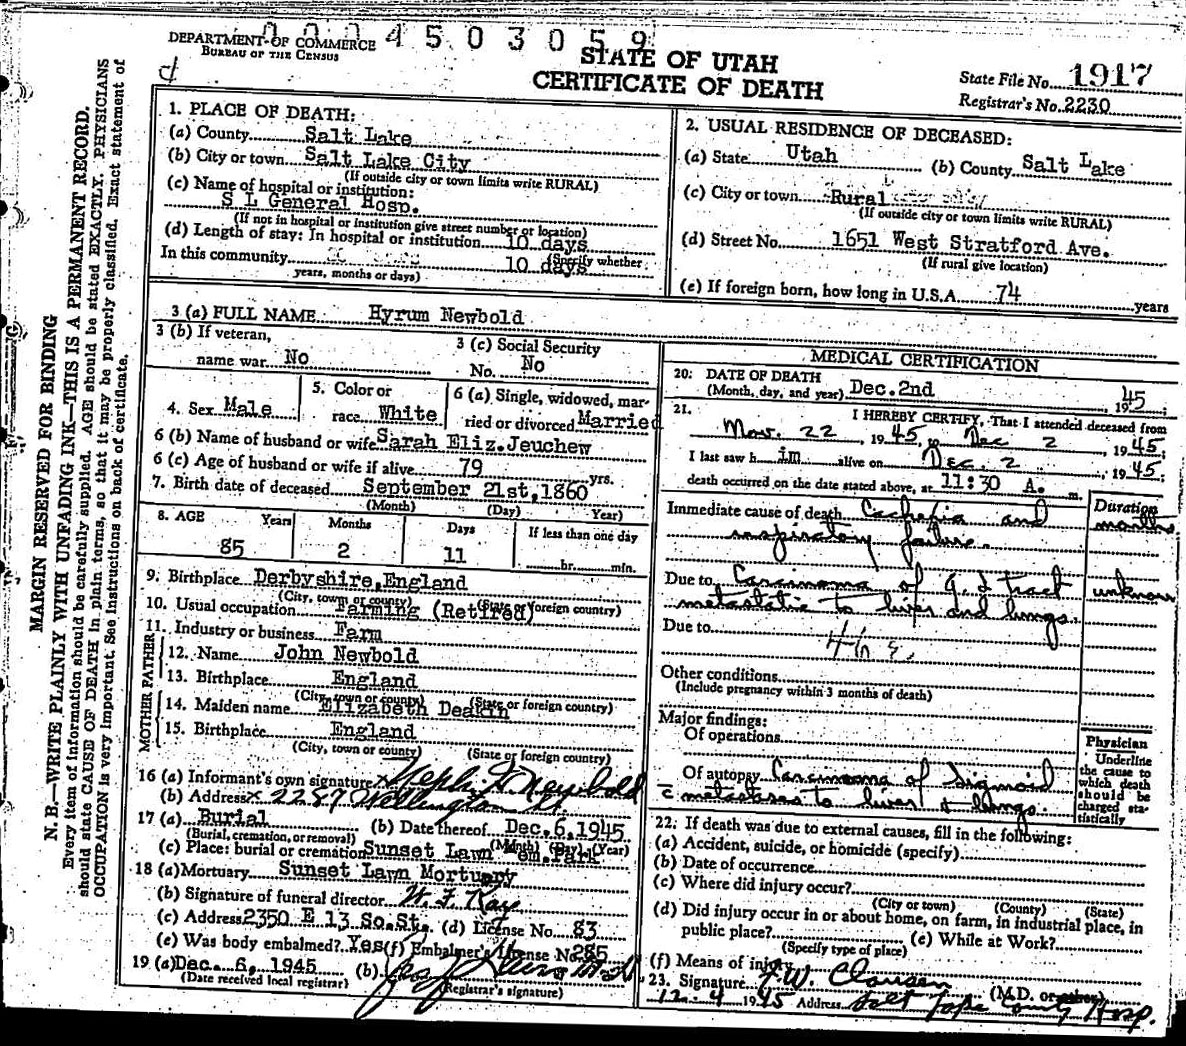 0 0 0 4 5 0 3 0 5 9
DEPARTMENT OF COMMERCE
BUREAU OF THE CENSUS
d
STATE OF UTAH
CERTIFICATE OF DEATH
State File No. 1917
Registrar's No. 2230
MARGIN RESERVED FOR BINDING
N. B.—WRITE PLAINLY WITH UNFADING INK—THIS IS A PERMANENT RECORD.
Every item of information should be carefully supplied. AGE should be stated EXACTLY. PHYSICIANS
should state CAUSE OF DEATH in plain terms, so that it may be properly classified. Exact statement of
OCCUPATION is very important. See instructions on back of certificate.
1. PLACE OF DEATH:
(a) County Salt Lake
(b) City or town Salt Lake City
(If outside city or town limits write RURAL)
(c) Name of hospital or institution:
S L General Hosp.
(If not in hospital or institution give street number or location)
(d) Length of stay: In hospital or institution 10 days
(Specify whether
In this community 10 days
years, months or days)
2. USUAL RESIDENCE OF DECEASED:
(a) State Utah (b) County Salt Lake
(c) City or town Rural
(If outside city or town limits write RURAL)
(d) Street No. 1651 West Stratford Ave.
(If rural give location)
(e) If foreign born, how long in U.S.A. 74 years
3 (a) FULL NAME Hyrum Newbold
3 (b) If veteran,
name war No
3 (c) Social Security
No. No
4. Sex Male
5. Color or
race White
6 (a) Single, widowed, mar-
ried or divorced Married
6 (b) Name of husband or wife Sarah Eliz. Jeuchew
6 (c) Age of husband or wife if alive 79 yrs.
7. Birth date of deceased September 21st, 1860
(Month) (Day) Year)
8. AGE Years Months Days If less than one day
85 2 11 hr. min.
9. Birthplace Derbyshire, England
(City, town or county) (State or foreign country)
10. Usual occupation Farming (Retired)
11. Industry or business Farm
FATHER
12. Name John Newbold
13. Birthplace England
(City, town or county) (State or foreign country)
MOTHER
14. Maiden name Elizabeth Deakin
15. Birthplace England
(City, town or county) (State or foreign country)
16 (a) Informant's own signature x Nephi Newbold
(b) Address x 2287 Wellington St
17 (a) Burial (b) Date thereof Dec. 6, 1945
(Burial, cremation, or removal) (Month) (Day) (Year)
(c) Place: burial or cremation Sunset Lawn Mem. Park
18 (a) Mortuary Sunset Lawn Mortuary
(b) Signature of funeral director W. F. Kay
(c) Address 2350 E 13 So. St. (d) License No. 83
(e) Was body embalmed? Yes (f) Embalmer's License No. 285
19 (a) Dec. 6, 1945 (b)
(Date received local registrar) (Registrar's signature)
MEDICAL CERTIFICATION
20: DATE OF DEATH
(Month, day, and year) Dec. 2nd 1945;
21. I HEREBY CERTIFY, That I attended deceased from
Nov. 22, 1945, to Dec 2, 1945;
I last saw h im alive on Dec. 2, 1945;
death occurred on the date stated above, at 11:30 A. m.
Duration
Immediate cause of death Cachexia and months
respiratory failure.
Due to Carcinoma of G. I tract unknown
metastatic to liver and lungs.
Due to
Other conditions
(Include pregnancy within 3 months of death)
Major findings:
Of operations
Of autopsy Carcinoma of Sigmoid
c metastases to liver & lungs.
Physician
Underline
the cause to
which death
should be
charged sta-
tistically
22. If death was due to external causes, fill in the following:
(a) Accident, suicide, or homicide (specify)
(b) Date of occurrence
(c) Where did injury occur?
(City or town) (County) (State)
(d) Did injury occur in or about home, on farm, in industrial place, in
public place? (e) While at Work?
(Specify type of place)
(f) Means of injury
23. Signature F. W. Clausen (M.D. or other)
12-4 1945 Address Salt Lake County Hosp.